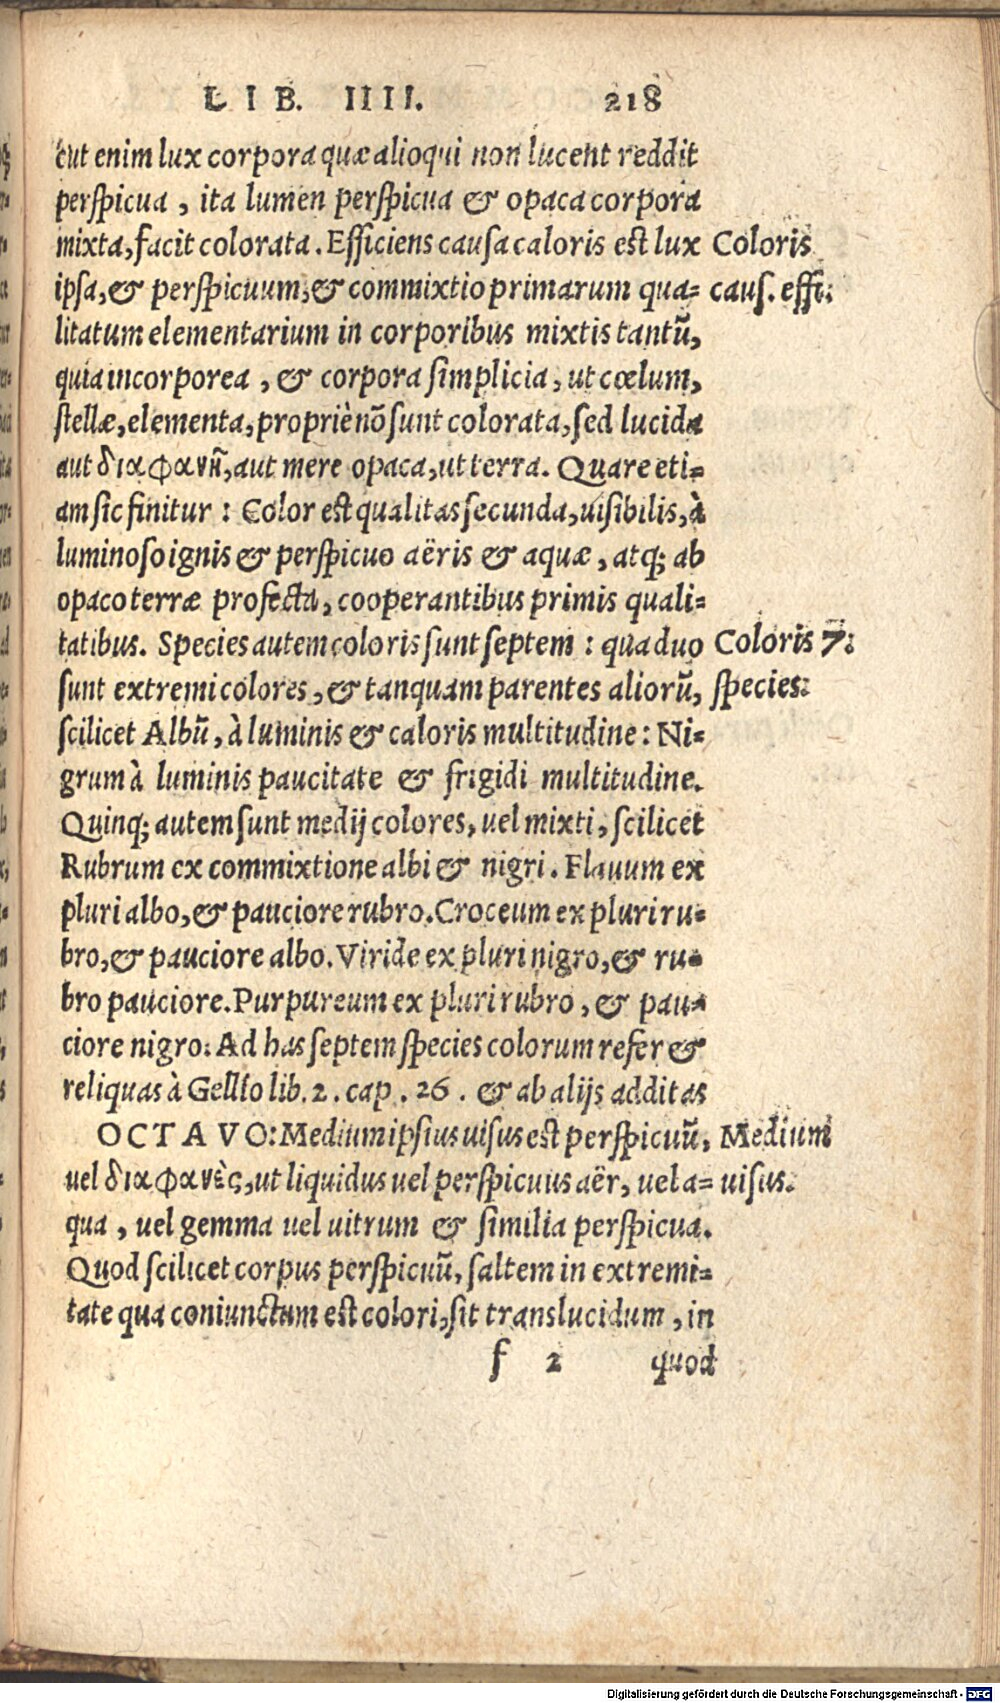 LIB. IIII. 218
cut enim lux corpora quæ alioqui non lucent reddit
perspicua, ita lumen perspicua & opaca corpora
mixta, facit colorata. Efficiens causa caloris est lux
Coloris
ipsa, & perspicuum, & commixtio primarum qua-
caus. effi:
litatum elementarium in corporibus mixtis tantũ,
quia incorporea, & corpora simplicia, ut cœlum,
stellæ, elementa, propriè nõ sunt colorata, sed lucida
aut διαφανῆ, aut mere opaca, ut terra. Quare eti-
am sic finitur: Color est qualitas secunda, uisibilis, à
luminoso ignis & perspicuo aëris & aquæ, atq; ab
opaco terræ profecta, cooperantibus primis quali-
tatibus. Species autem coloris sunt septem: qua duo
Coloris 7:
sunt extremi colores, & tanquam parentes aliorũ,
species:
scilicet Albũ, à luminis & caloris multitudine: Ni-
grum à luminis paucitate & frigidi multitudine.
Quinq; autem sunt medij colores, uel mixti, scilicet
Rubrum ex commixtione albi & nigri. Flauum ex
pluri albo, & pauciore rubro. Croceum ex pluri ru-
bro, & pauciore albo. Viride ex pluri nigro, & ru-
bro pauciore. Purpureum ex pluri rubro, & pau-
ciore nigro: Ad has septem species colorum refer &
reliquas à Gellio lib. 2. cap. 26. & ab alijs additas
OCTAVO: Medium ipsius uisus est perspicuũ,
Medium
uel διαφανὲς, ut liquidus uel perspicuus aër, uel a-
uisus.
qua, uel gemma uel uitrum & similia perspicua.
Quod scilicet corpus perspicuũ, saltem in extremi-
tate qua coniunctum est colori, sit translucidum, in
f 2 quod
Digitalisierung gefördert durch die Deutsche Forschungsgemeinschaft - DFG